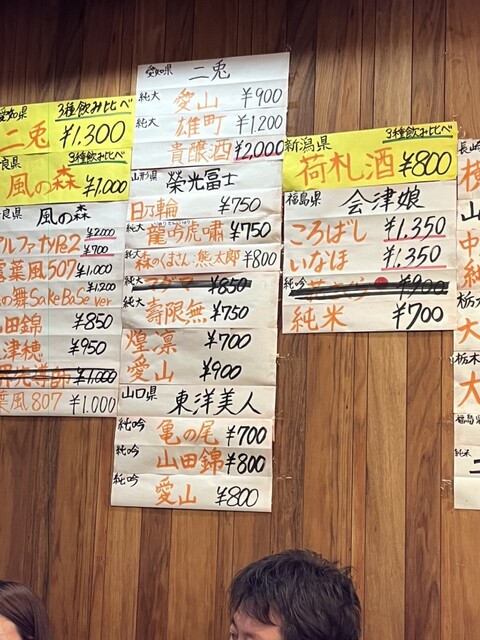 愛知県
3種飲み比べ
二兎 ¥1,300
3種飲み比べ
風の森 ¥1,000
風の森
アルファ ¥2,000
¥700
露葉風507 ¥1,000
の舞SakeBaSe ver ¥1,200
山田錦 ¥850
¥950
¥1,000
葉風807 ¥1,000
愛知県 二兎
純大 愛山 ¥900
純大 雄町 ¥1.200
貴醸酒 ¥2,000
山形県 榮光冨士
日乃輪 ¥750
純大 龍吟虎嘯 ¥750
純大 森のくまさん・熊太郎 ¥800
¥850
純大 壽限無 ¥750
煌凛 ¥700
愛山 ¥900
山口県 東洋美人
純吟 亀の尾 ¥700
純吟 山田錦 ¥800
純吟 愛山 ¥800
新潟県 3種飲み比べ
荷札酒 ¥800
福島県 会津娘
ころばし ¥1,350
いなほ ¥1,350
純吟 ¥900
純米 ¥700
長崎
山
中
純
栃木
大
栃木
大
福島県
純米